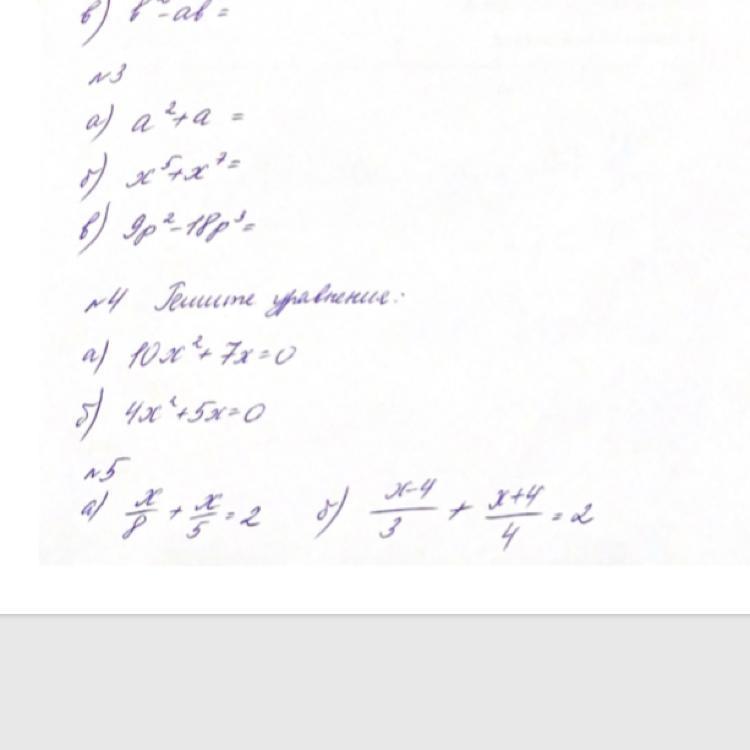 в) b²-ab=
№3
а) a²+a =
б) x⁵+x⁷=
в) 9p²-18p³=
№4 Решите уравнение:
а) 10x²+7x=0
б) 4x²+5x=0
№5
а) x/8 + x/5 = 2 б) x-4/3 + x+4/4 = 2